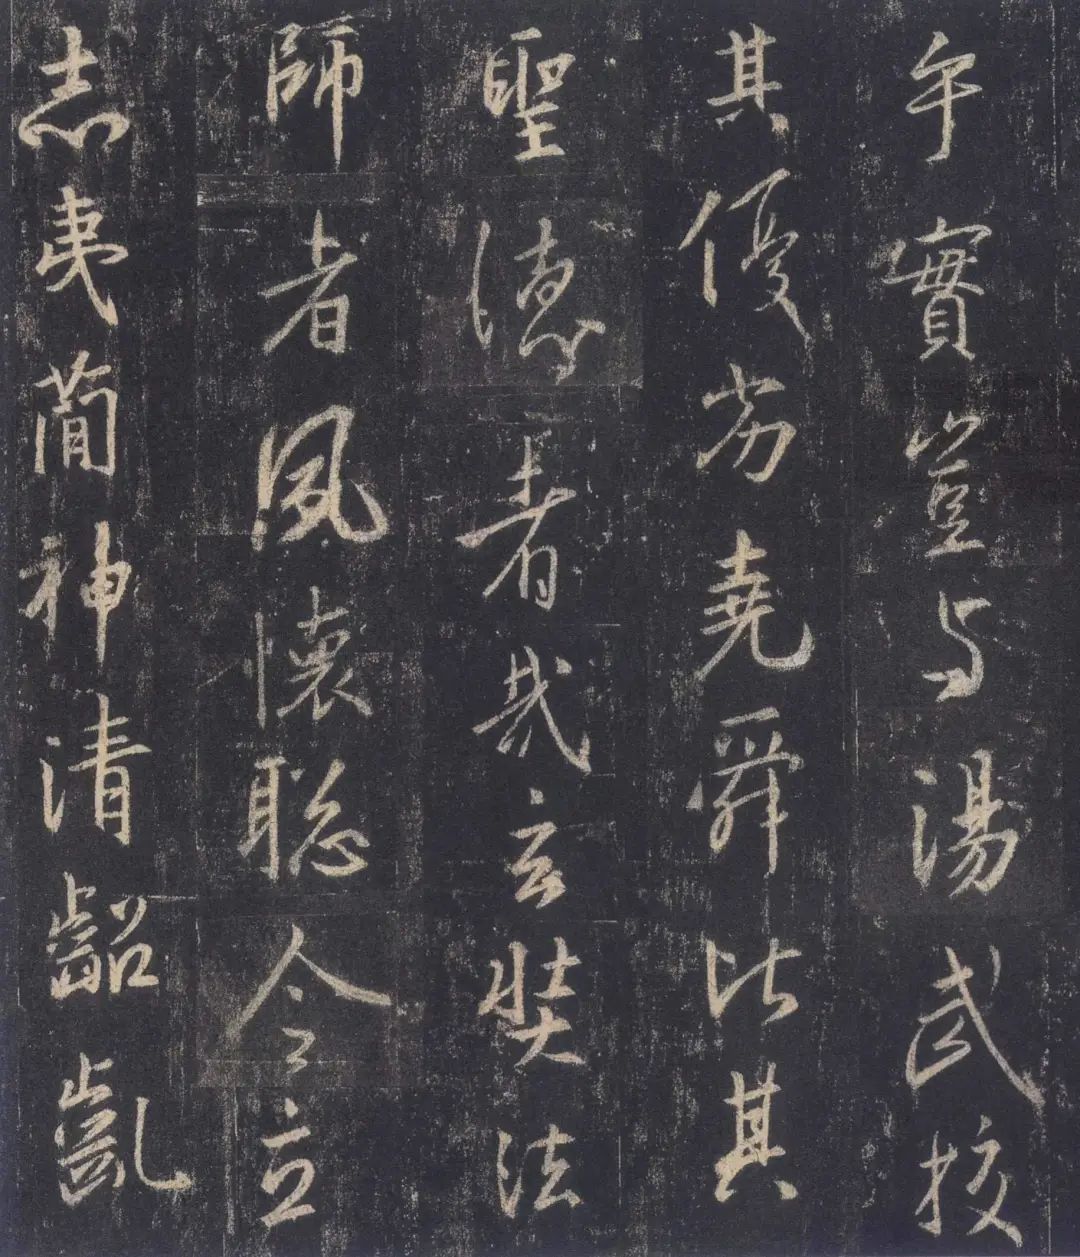 乎實豈与湯武校
其優劣堯舜比其
聖德者哉玄奘法
師者夙懷聰令立
志夷簡神清齠齔